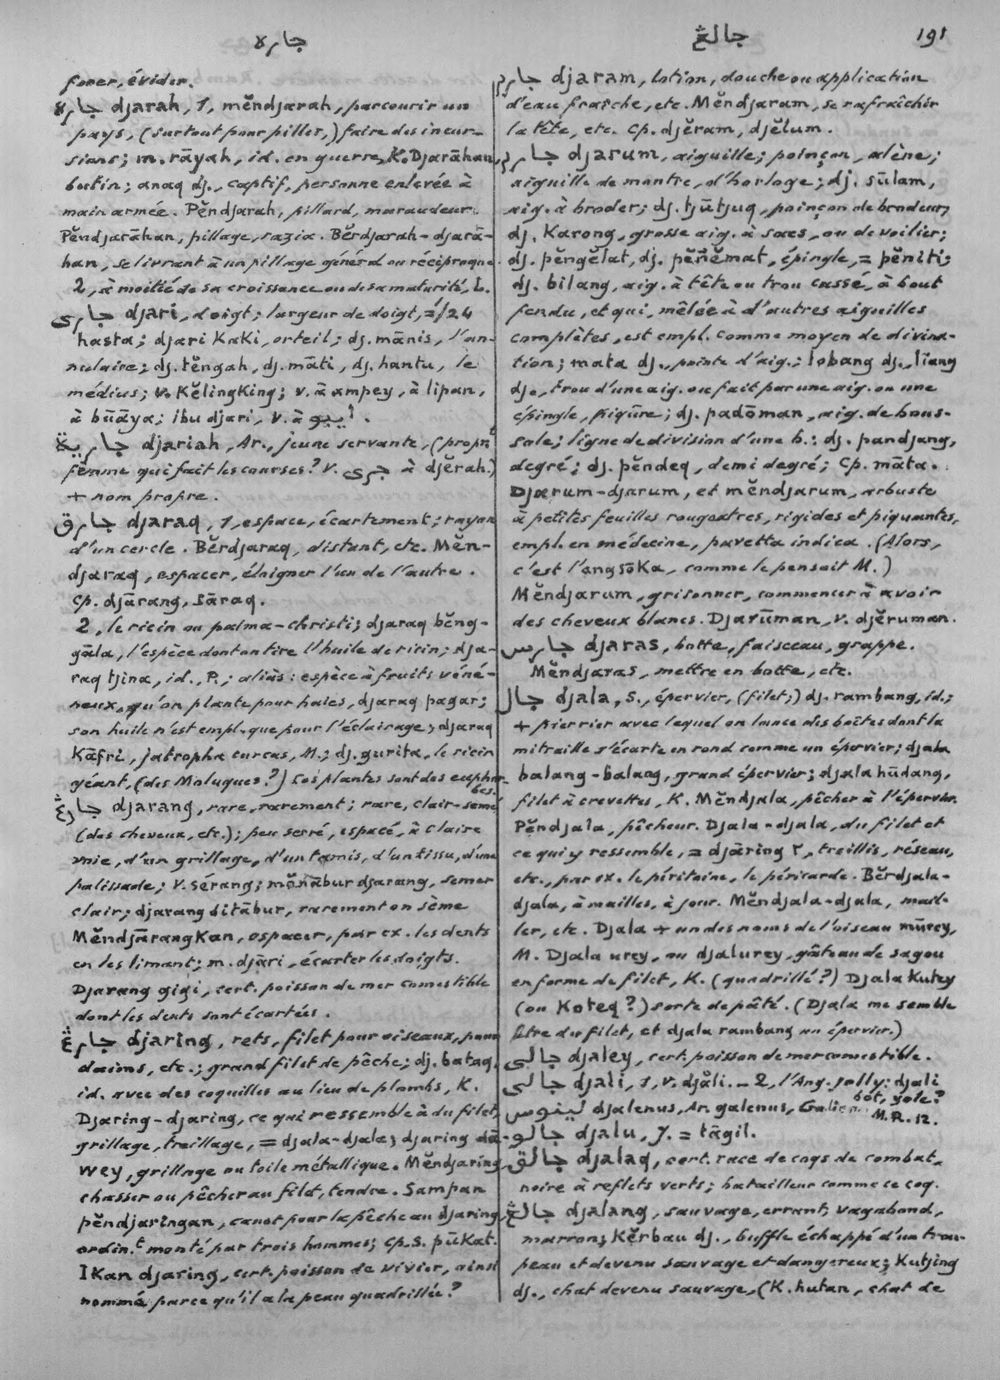 جاره
جالڠ
191
forer, évider.
جاره djarah, 1, měndjarah, parcourir un
pays, (surtout pour piller,) faire des incur-
sions; m. rāyah, id. en guerre, K. Djarāhan,
butin; anaq dj., captif, personne enlevée à
main armée. Pěndjarah, pillard, maraudeur.
Pěndjarāhan, pillage, razia. Běrdjarah-djarā-
han, se livrant à un pillage général ou réciproque.
2, à moitié de sa croissance ou de sa maturité, L.
جاري djari, doigt; largeur de doigt, = 1/24
hasta; djari Kaki, orteil; dj. mānis, l'an-
nulaire; dj. těngah, dj. māti, dj. hantu, le
médius; v. Kělingking; v. à ampey, à lipan,
à būāya; ibu djari, v. à ايبو.
جارية djariah, Ar., jeune servante, (propnt
femme qui fait les courses? v. جرى à djěrah.)
+ nom propre.
جارق djaraq, 1, espace, écartement; rayon
d'un cercle. Běrdjaraq, distant, etc. Měn-
djaraq, espacer, éloigner l'un de l'autre.
Cp. djārang, sāraq.
2, le ricin ou palma-christi; djaraq běng-
gāla, l'espèce dont on tire l'huile de ricin; dja-
raq tjina, id., P.; aliàs: espèce à fruits véné-
neux, qu'on plante pour haies, djaraq pagar;
son huile n'est empl. que pour l'éclairage; djaraq
Kāfri, jatropha curcas, M.; dj. gurita, le ricin
géant, (des Moluques?) Ces plantes sont des euphor-
bes.
جارڠ djarang, rare, rarement; rare, clair-semé
(des cheveux, etc.); peu serré, espacé, à claire
voie, d'un grillage, d'un tamis, d'un tissu, d'une
palissade; v. sérang; měnābur djarang, semer
clair; djarang ditābur, rarement on sème
MěndjārangKan, espacer, par ex. les dents
en les limant; m. djāri, écarter les doigts.
Djarang gigi, cert. poisson de mer comestible
dont les dents sont écartées.
جارڠ djaring, rets, filet pour oiseaux, pour
daims, etc.; grand filet de pêche; dj. bataq,
id. avec des coquilles au lieu de plombs, K.
Djaring-djaring, ce qui ressemble à du filet,
grillage, treillage, = djala-djala; djaring dā-
wey, grillage ou toile métallique. Měndjaring,
chasser ou pêcher au filet, tendre. Sampan
pěndjaringan, canot pour la pêche au djaring,
ordin.t monté par trois hommes; cp. s. pūKat.
IKan djaring, cert. poisson de vivier, ainsi
nommé parce qu'il a la peau quadrillée?
جارم djaram, lotion, douche ou application
d'eau fraîche, etc. Měndjaram, se rafraîchir
la tête, etc. Cp. djěram, djělum.
جارم djarum, aiguille; poinçon, alène;
aiguille de montre, d'horloge; dj. sūlam,
aig. à broder; dj. tjūtjuq, poinçon de brodeur,
dj. Karong, grosse aig. à sacs, ou de voilier;
dj. pěngělat, dj. pěñěmat, épingle, = pěniti;
dj. bilang, aig. à tête ou trou cassé, à bout
fendu, et qui, mêlée à d'autres aiguilles
complètes, est empl. comme moyen de divina-
tion; mata dj., pointe d'aig.; lobang dj., līang
dj., trou d'une aig. ou fait par une aig. ou une
épingle, piqûre; dj. padōman, aig. de bous-
sole; ligne de division d'une b.; dj. pandjang,
degré; dj. pěndeq, demi degré; Cp. māta.
Djarum-djarum, et měndjarum, arbuste
à petites feuilles rougeatres, rigides et piquantes,
empl. en médecine, pavetta indica. (Alors,
c'est l'angsōKa, comme le pensait M.)
Měndjarum, grisonner, commencer à avoir
des cheveux blancs. Djarūman, v. djěruman.
جارس djaras, botte, faisceau, grappe.
Měndjaras, mettre en botte, etc.
جال djala, S., épervier, (filet,) dj. rambang, id.;
+ pierrier avec lequel on lance des boîtes dont la
mitraille s'écarte en rond comme un épervier; djala
balang-balang, grand épervier; djala hūdang,
filet à crevettes, K. Měndjala, pêcher à l'épervier.
Pěndjala, pêcheur. Djala-djala, du filet et
ce qui y ressemble, = djāring ٢, treillis, réseau,
etc., par ex. le péritoine, le péricarde. Běrdjala-
djala, à mailles, à jour. Měndjala-djala, mail-
ler, etc. Djala + un des noms de l'oiseau mūrey,
M. Djala urey, ou djalurey, gâteau de sagou
en forme de filet, K. (quadrillé?) Djala Kutey
(ou Koteq?) sorte de pâté. (Djala me semble
être du filet, et djala rambang un épervier.)
جالي djaley, cert. poisson de mer comestible.
جالي djali, 1, v. djāli. – 2, l'Ang. jolly: djali
bōt, yole?
M.R. 12.
لينوس djalenus, Ar. galenus, Galien
جالو djalu, J. = tāgil.
جالق djalaq, cert. race de coqs de combat,
noire à reflets verts; batailleur comme ce coq.
جالڠ djalang, sauvage, errant, vagabond,
marron; Kěrbau dj., buffle échappé d'un trou-
peau et devenu sauvage et dangereux; Kutjing
dj., chat devenu sauvage, (K. hutan, chat de